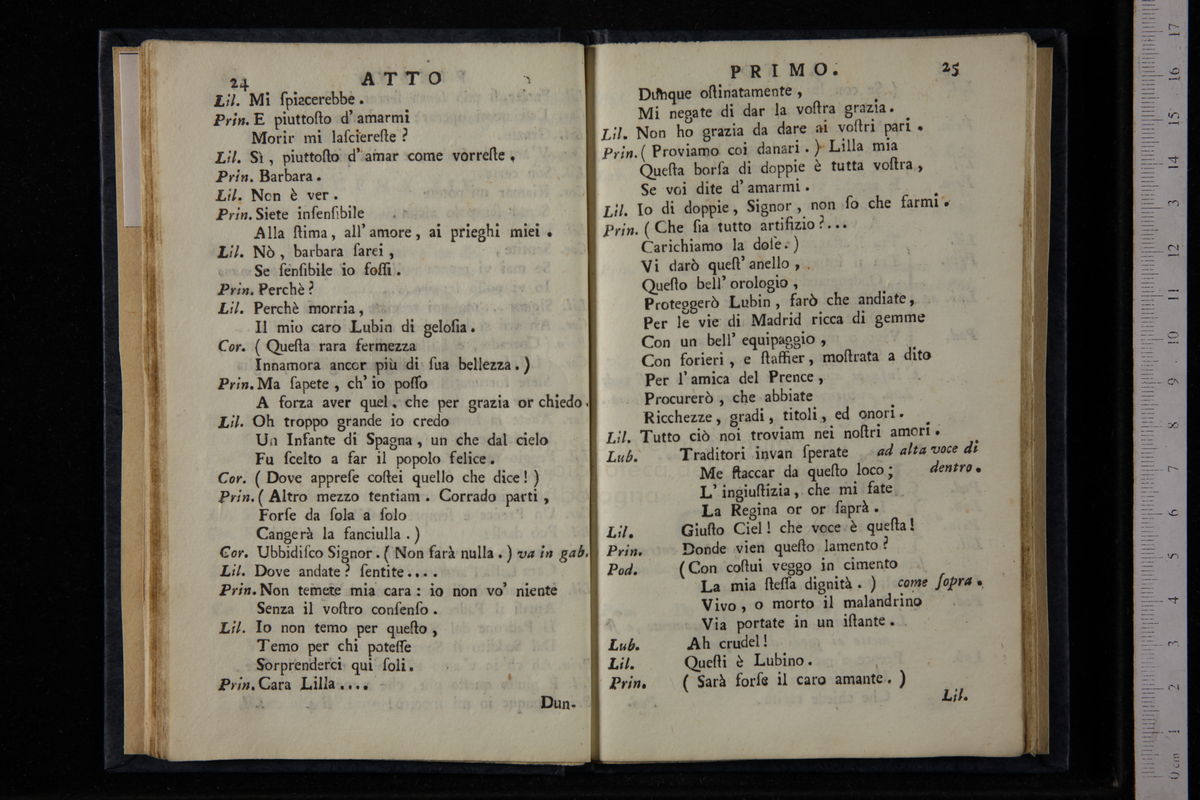 24 ATTO
Lil. Mi ſpiacerebbe.
Prin. E piuttoſto d'amarmi
Morir mi laſciereſte?
Lil. Sì, piuttoſto d'amar come vorreſte.
Prin. Barbara.
Lil. Non è ver.
Prin. Siete inſenſibile
Alla ſtima, all'amore, ai prieghi miei.
Lil. Nò, barbara ſarei,
Se ſenſibile io foſſi.
Prin. Perchè?
Lil. Perchè morria,
Il mio caro Lubin di geloſia.
Cor. (Queſta rara fermezza
Innamora ancor più di ſua bellezza.)
Prin. Ma ſapete, ch'io poſſo
A forza aver quel, che per grazia or chiedo.
Lil. Oh troppo grande io credo
Un Infante di Spagna, un che dal cielo
Fu ſcelto a far il popolo felice.
Cor. (Dove appreſe coſtei quello che dice!)
Prin. (Altro mezzo tentiam. Corrado parti,
Forſe da ſola a ſolo
Cangerà la fanciulla.)
Cor. Ubbidiſco Signor. (Non farà nulla.) va in gab.
Lil. Dove andate? ſentite....
Prin. Non temete mia cara: io non vo' niente
Senza il voſtro conſenſo.
Lil. Io non temo per queſto,
Temo per chi poteſſe
Sorprenderci qui ſoli.
Prin. Cara Lilla....
Dun-
PRIMO. 25
Dunque oſtinatamente,
Mi negate di dar la voſtra grazia.
Lil. Non ho grazia da dare ai voſtri pari.
Prin. (Proviamo coi danari.) Lilla mia
Queſta borſa di doppie è tutta voſtra,
Se voi dite d'amarmi.
Lil. Io di doppie, Signor, non ſo che farmi.
Prin. (Che ſia tutto artifizio?...
Carichiamo la doſe.)
Vi darò queſt'anello,
Queſto bell'orologio,
Proteggerò Lubin, farò che andiate,
Per le vie di Madrid ricca di gemme
Con un bell'equipaggio,
Con forieri, e ſtaffier, moſtrata a dito
Per l'amica del Prence,
Procurerò, che abbiate
Ricchezze, gradi, titoli, ed onori.
Lil. Tutto ciò noi troviam nei noſtri amori.
Lub. Traditori invan ſperate ad alta voce di
Me ſtaccar da queſto loco; dentro.
L'ingiuſtizia, che mi fate
La Regina or or ſaprà.
Lil. Giuſto Ciel! che voce è queſta!
Prin. Donde vien queſto lamento?
Pod. (Con coſtui veggo in cimento
La mia ſteſſa dignità.) come ſopra.
Vivo, o morto il malandrino
Via portate in un iſtante.
Lub. Ah crudel!
Lil. Queſti è Lubino.
Prin. (Sarà forſe il caro amante.)
Lil.
17
16
15
14
13
12
11
10
9
8
7
6
5
4
3
2
1
0 cm